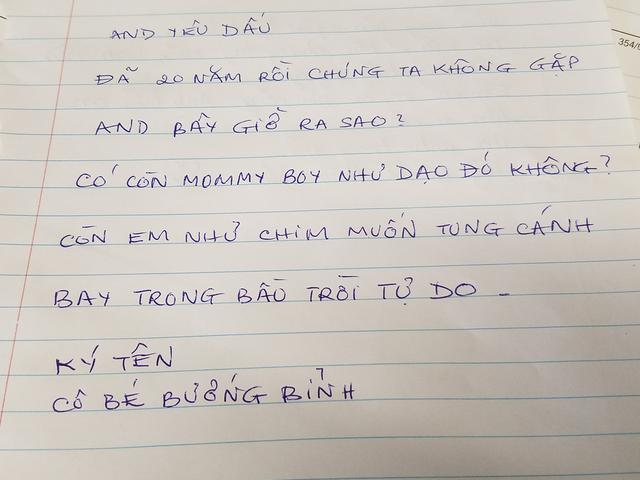 AND YÊU DẤU
354/
ĐÃ 20 NĂM RỒI CHÚNG TA KHÔNG GẶP
AND BÂY GIỜ RA SAO?
CÓ CÒN MOMMY BOY NHƯ DẠO ĐÓ KHÔNG?
CÒN EM NHƯ CHIM MUỐN TUNG CÁNH
BAY TRONG BẦU TRỜI TỰ DO -
KÝ TÊN
CÔ BÉ BƯỚNG BỈNH